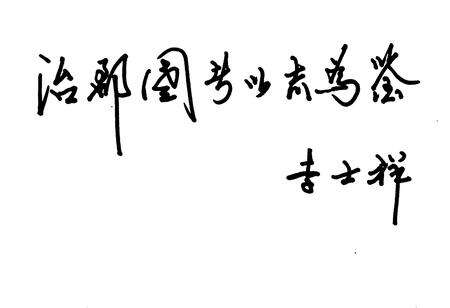 治郡国者以志为鉴
李士祥